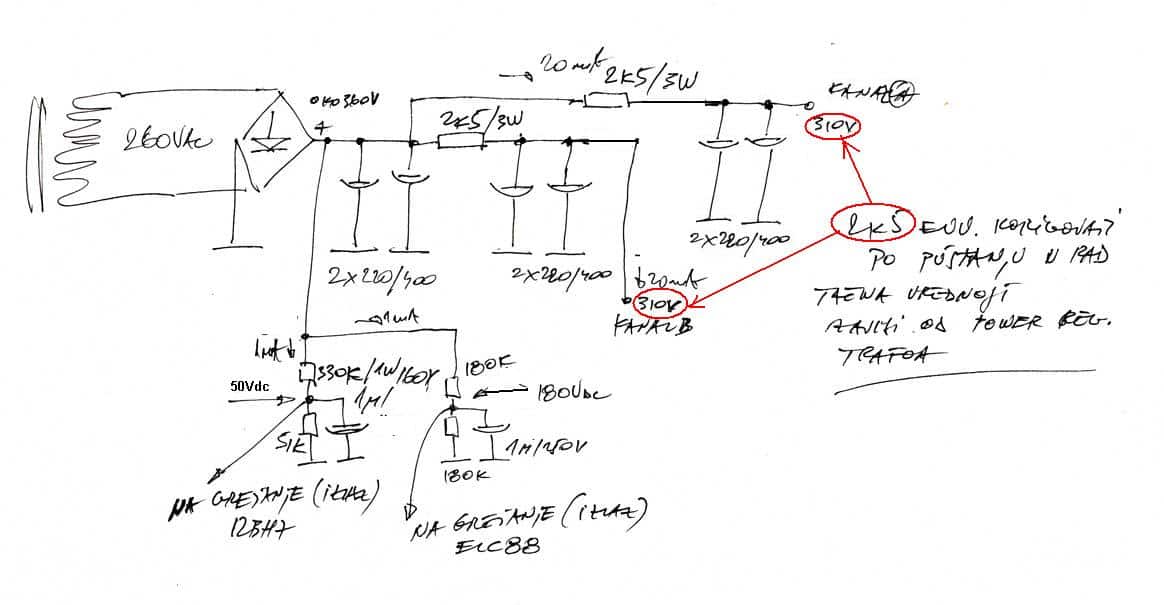 20mA
2K5/3W
KANAL A
OKO 360V
+
2K5/3W
310V
260VAC
2K5 EVV. KORIGOVATI
PO PUŠTANJU U RAD
TAČNA VREDNOST
ZAVISI OD POWER REG.
TRAFOA
2X220/400
2X220/400
2X220/400
20mA
310V
KANAL B
1mA
1mA
330K/1W/160V
180K
50Vdc
1M/
180VDC
51K
1M/250V
180K
NA GREJANJE (IZLAZ)
12BH7
NA GREJANJE (IZLAZ)
ECC88